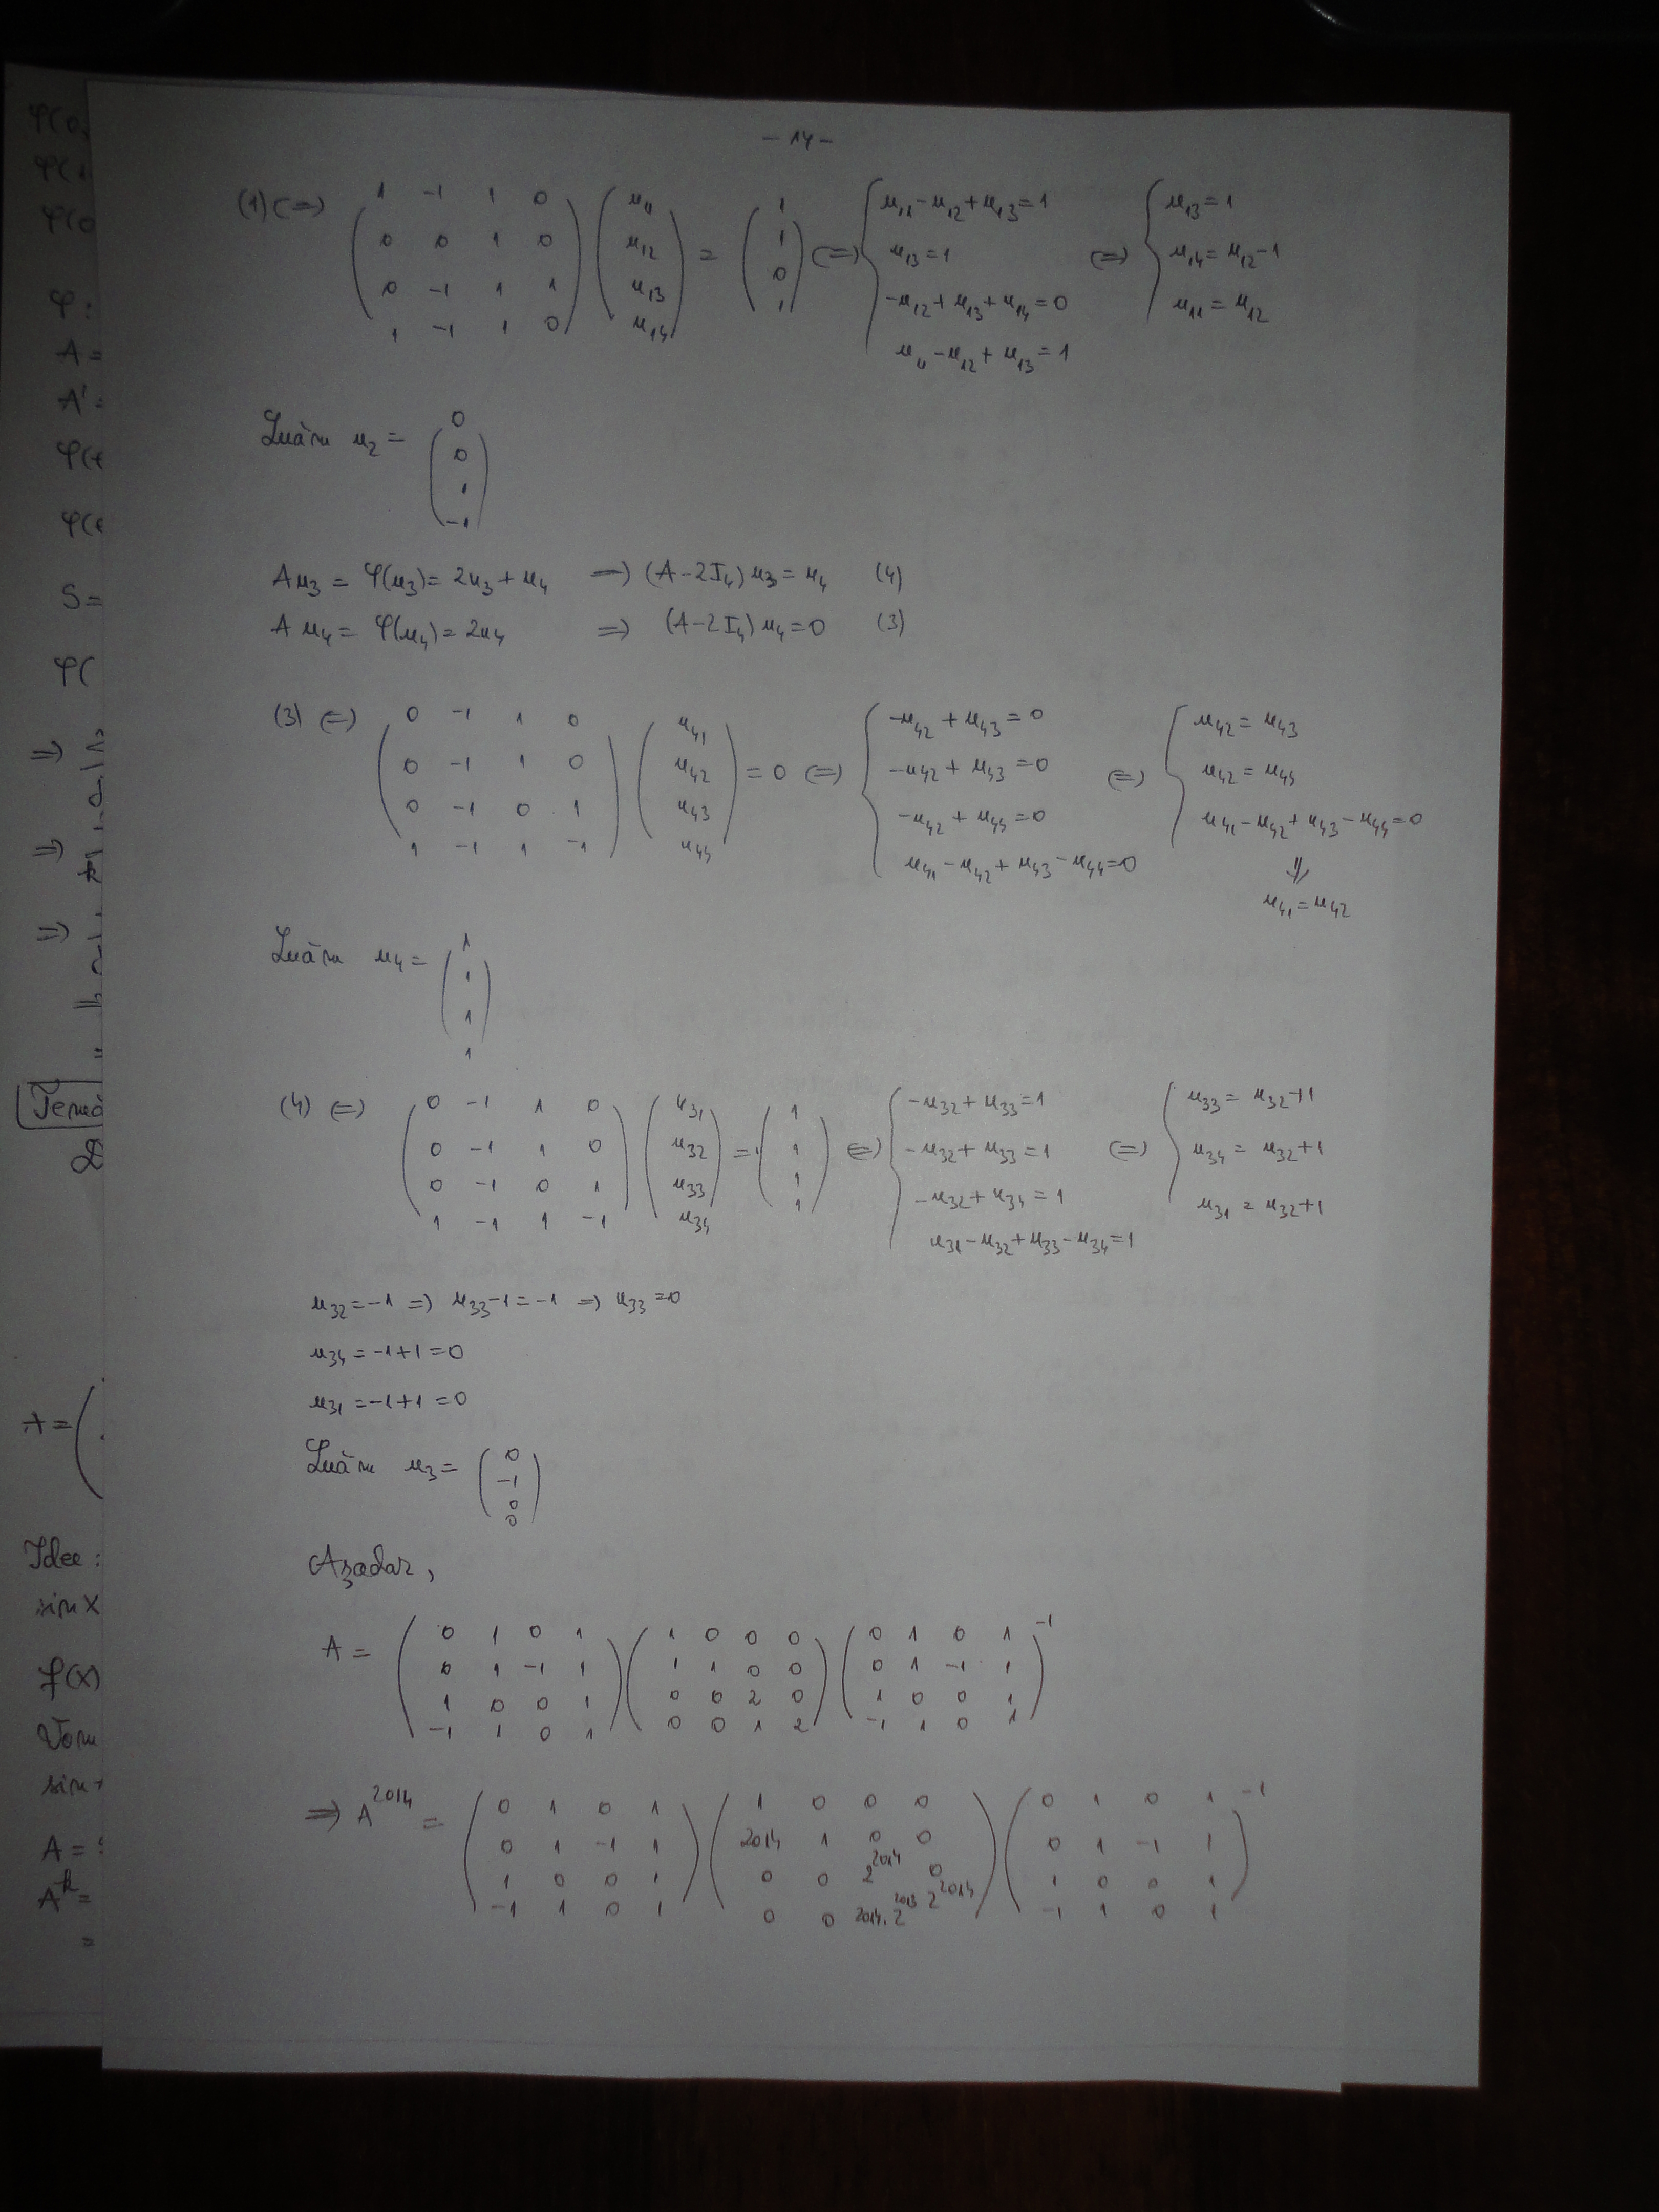 - 14 -
(1) (=) ( 1 -1 1 0 ; 0 0 1 0 ; 0 -1 1 1 ; 1 -1 1 0 ) ( u11 ; u12 ; u13 ; u14 ) = ( 1 ; 1 ; 0 ; 1 ) (=) { u11 - u12 + u13 = 1 ; u13 = 1 ; -u12 + u13 + u14 = 0 ; u11 - u12 + u13 = 1 (=) { u13 = 1 ; u14 = u12 - 1 ; u11 = u12
Luăm u2 = ( 0 ; 0 ; 1 ; -1 )
Au3 = φ(u3) = 2u3 + u4 => (A - 2I4) u3 = u4 (4)
A u4 = φ(u4) = 2u4 => (A - 2I4) u4 = 0 (3)
(3) (=) ( 0 -1 1 0 ; 0 -1 1 0 ; 0 -1 0 1 ; 1 -1 1 -1 ) ( u41 ; u42 ; u43 ; u44 ) = 0 (=) { -u42 + u43 = 0 ; -u42 + u43 = 0 ; -u42 + u44 = 0 ; u41 - u42 + u43 - u44 = 0 (=) { u42 = u43 ; u42 = u44 ; u41 - u42 + u43 - u44 = 0
⇓
u41 = u42
Luăm u4 = ( 1 ; 1 ; 1 ; 1 )
(4) (=) ( 0 -1 1 0 ; 0 -1 1 0 ; 0 -1 0 1 ; 1 -1 1 -1 ) ( u31 ; u32 ; u33 ; u34 ) = ( 1 ; 1 ; 1 ; 1 ) (=) { -u32 + u33 = 1 ; -u32 + u33 = 1 ; -u32 + u34 = 1 ; u31 - u32 + u33 - u34 = 1 (=) { u33 = u32 + 1 ; u34 = u32 + 1 ; u31 = u32 + 1
u32 = -1 => u33 - 1 = -1 => u33 = 0
u34 = -1 + 1 = 0
u31 = -1 + 1 = 0
Luăm u3 = ( 0 ; -1 ; 0 ; 0 )
Așadar,
A = ( 0 1 0 1 ; 0 1 -1 1 ; 1 0 0 1 ; -1 1 0 1 ) ( 1 0 0 0 ; 1 1 0 0 ; 0 0 2 0 ; 0 0 1 2 ) ( 0 1 0 1 ; 0 1 -1 1 ; 1 0 0 1 ; -1 1 0 1 )^-1
=> A^2014 = ( 0 1 0 1 ; 0 1 -1 1 ; 1 0 0 1 ; -1 1 0 1 ) ( 1 0 0 0 ; 2014 1 0 0 ; 0 0 2^2014 0 ; 0 0 2014·2^2013 2^2014 ) ( 0 1 0 1 ; 0 1 -1 1 ; 1 0 0 1 ; -1 1 0 1 )^-1
φ(0,
φ(1
φ(0
φ:
A =
A' =
φ(
φ(
S =
φ(
=>
=>
=>
Temă
A = (
Idee:
sin X
f(X)
Vom
sin
A =
A^k =
=